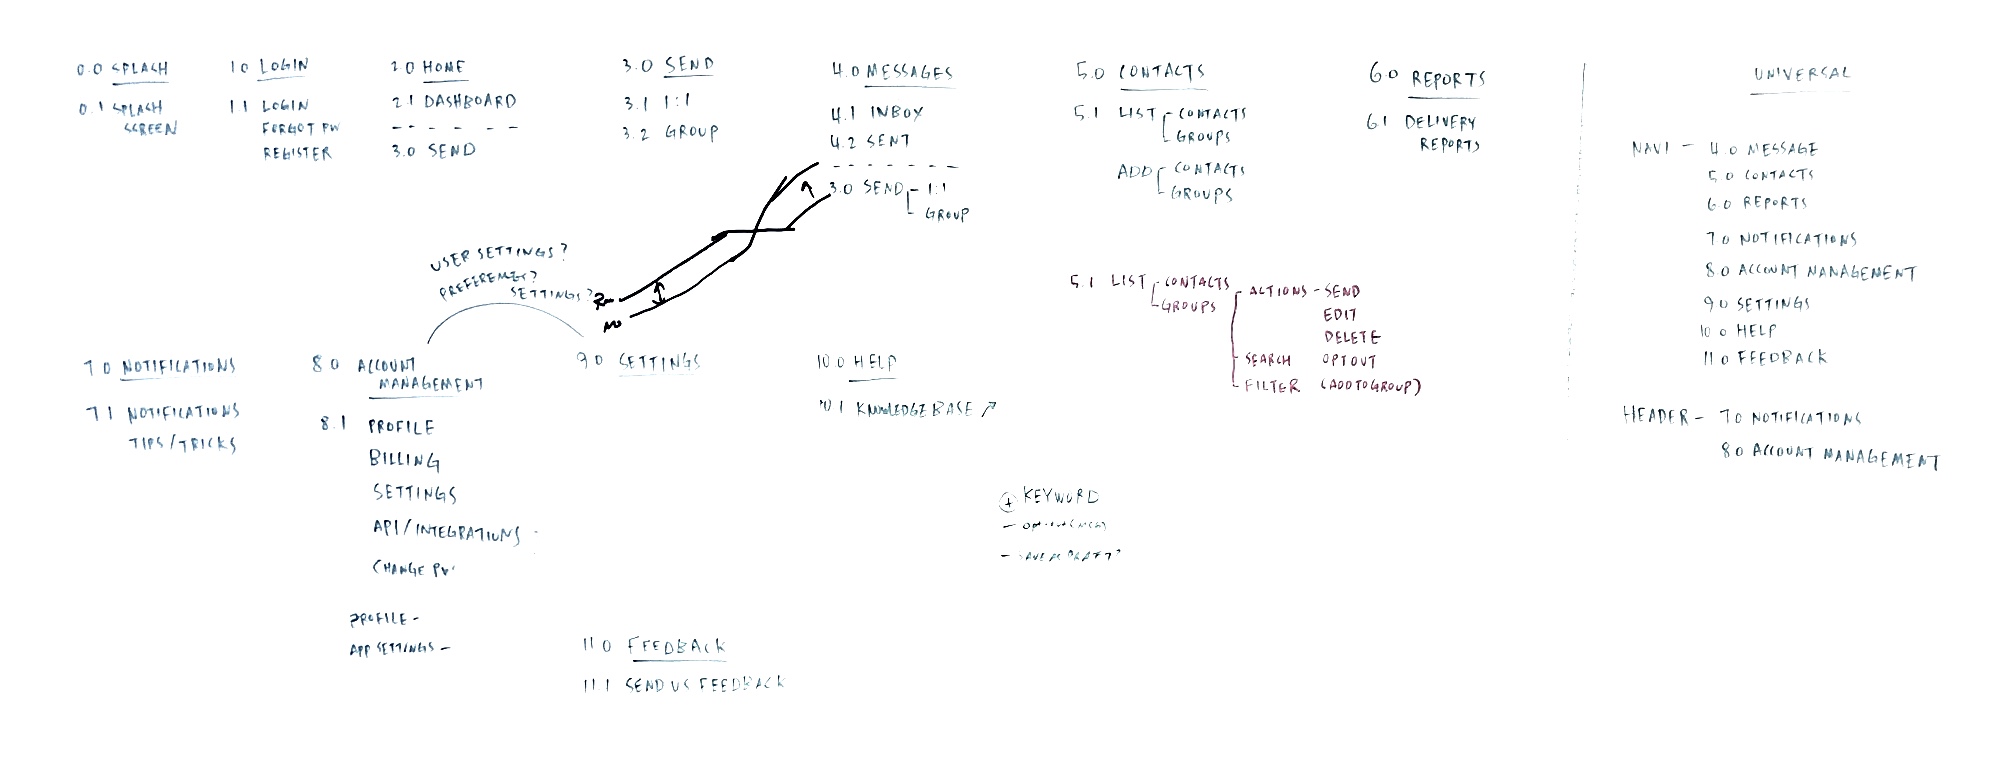 0.0 SPLASH
0.1 SPLASH
SCREEN
1.0 LOGIN
1.1 LOGIN
FORGOT PW
REGISTER
2.0 HOME
2.1 DASHBOARD
3.0 SEND
3.0 SEND
3.1 1:1
3.2 GROUP
4.0 MESSAGES
4.1 INBOX
4.2 SENT
3.0 SEND - 1:1
GROUP
5.0 CONTACTS
5.1 LIST - CONTACTS
GROUPS
ADD - CONTACTS
GROUPS
6.0 REPORTS
6.1 DELIVERY
REPORTS
5.1 LIST - CONTACTS
GROUPS
ACTIONS - SEND
EDIT
DELETE
SEARCH OPTOUT
FILTER (ADD TO GROUP)
USER SETTINGS?
PREFERENCES?
SETTINGS?
7.0 NOTIFICATIONS
7.1 NOTIFICATIONS
TIPS/TRICKS
8.0 ACCOUNT
MANAGEMENT
8.1 PROFILE
BILLING
SETTINGS
API/INTEGRATIONS -
CHANGE PW
PROFILE -
APP SETTINGS -
9.0 SETTINGS
10.0 HELP
10.1 KNOWLEDGE BASE ↗
11.0 FEEDBACK
11.1 SEND US FEEDBACK
+ KEYWORD
- SAVE AS DRAFT?
UNIVERSAL
NAVI - 4.0 MESSAGE
5.0 CONTACTS
6.0 REPORTS
7.0 NOTIFICATIONS
8.0 ACCOUNT MANAGEMENT
9.0 SETTINGS
10.0 HELP
11.0 FEEDBACK
HEADER - 7.0 NOTIFICATIONS
8.0 ACCOUNT MANAGEMENT